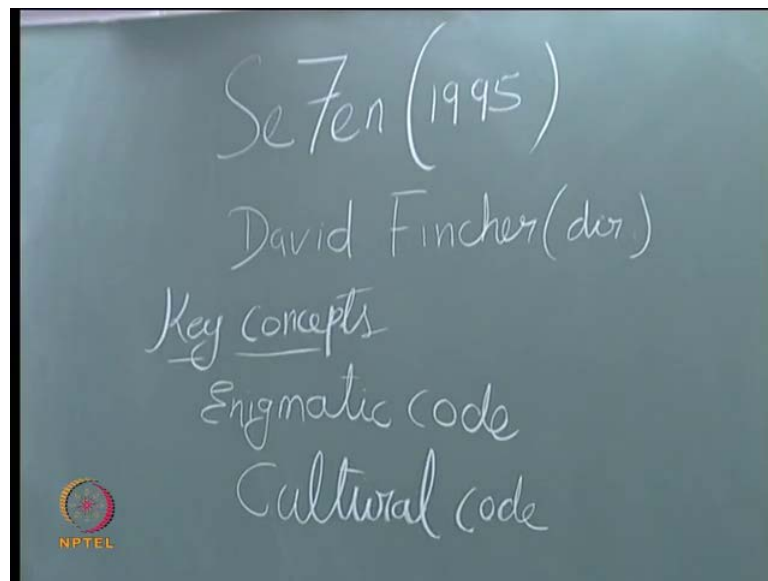 Se7en (1995)
David Fincher (dir.)
Key concepts
Enigmatic code
Cultural code
NPTEL